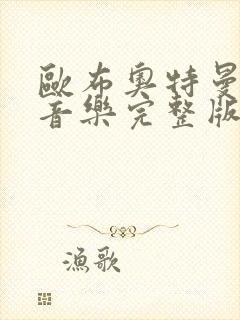 歐布奧特曼
音樂完整版
漁歌